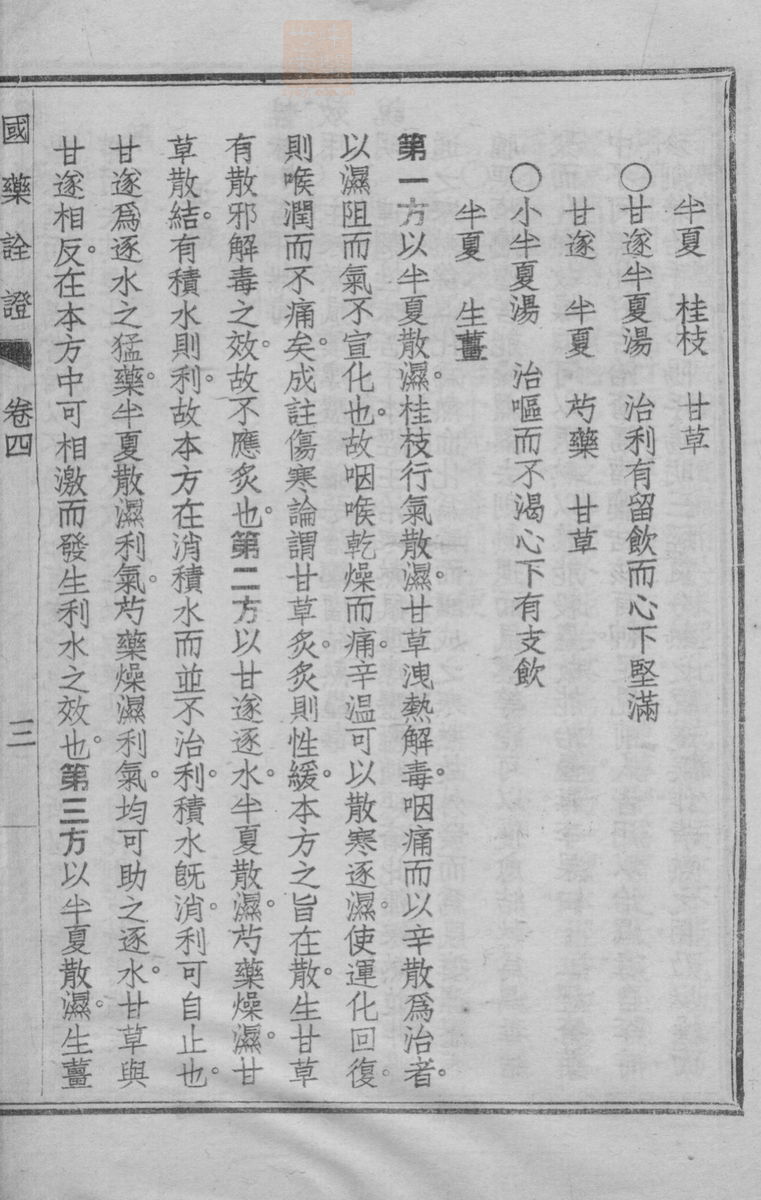 半夏　桂枝　甘草
○甘遂半夏湯　治利有留飲而心下堅滿
甘遂　半夏　芍藥　甘草
○小半夏湯　治嘔而不渴心下有支飲
半夏　生薑
第一方以半夏散濕。桂枝行氣散濕。甘草洩熱解毒。咽痛而以辛散爲治者。
以濕阻而氣不宣化也。故咽喉乾燥而痛。辛温可以散寒逐濕。使運化回復。
則喉潤而不痛矣。成註傷寒論謂甘草炙。炙則性緩。本方之旨在散。生甘草
有散邪解毒之效。故不應炙也。第二方以甘遂逐水。半夏散濕。芍藥燥濕。甘
草散結。有積水則利。故本方在消積水而並不治利。積水旣消。利可自止也。
甘遂爲逐水之猛藥。半夏散濕利氣。芍藥燥濕利氣。均可助之逐水。甘草與
甘遂相反。在本方中可相激而發生利水之效也。第三方以半夏散濕。生薑
國藥詮證　卷四　三